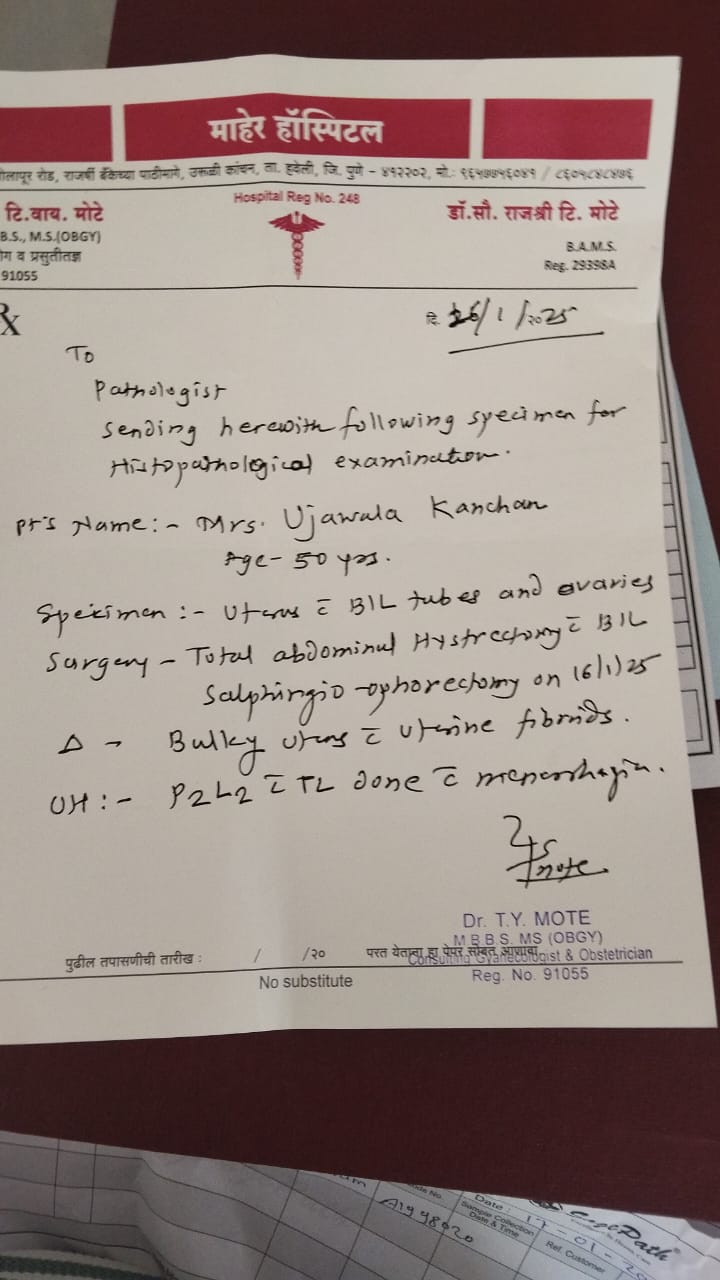 माहेर हॉस्पिटल
रोड, राजर्षी बँकेच्या पाठीमागे, उरूळी कांचन, ता. हवेली, जि. पुणे - ४१२२०२, मो.:
Hospital Reg No. 248
टि.वाय. मोटे
B.S., M.S.(OBGY)
व प्रसुतीतज्ञ
91055
डॉ.सौ. राजश्री टि. मोटे
B.A.M.S.
Reg. 29398A
दि. 16/1/२०25
To
Pathologist
Sending herewith following specimen for
Histopathological examination.
Pt's Name:- Mrs. Ujawala Kanchan
Age- 50 yrs.
Specimen :- Uterus c̄ B/L tubes and ovaries
Surgery - Total abdominal Hystrectomy c̄ B/L
Salphingio-ophorectomy on 16/1/25
Δ → Bulky uterus c̄ uterine fibroids.
OH :- P2L2 c̄ TL done c̄ menorrhagia.
Dr. T.Y. MOTE
M.B.B.S. MS (OBGY)
Consulting Gynaecologist & Obstetrician
Reg. No. 91055
पुढील तपासणीची तारीख : / /२०
परत येताना हा पेपर सोबत आणावा
No substitute
Date: 17-01-2
Sample Collection
Date & Time
Ref. Customer
A1998020